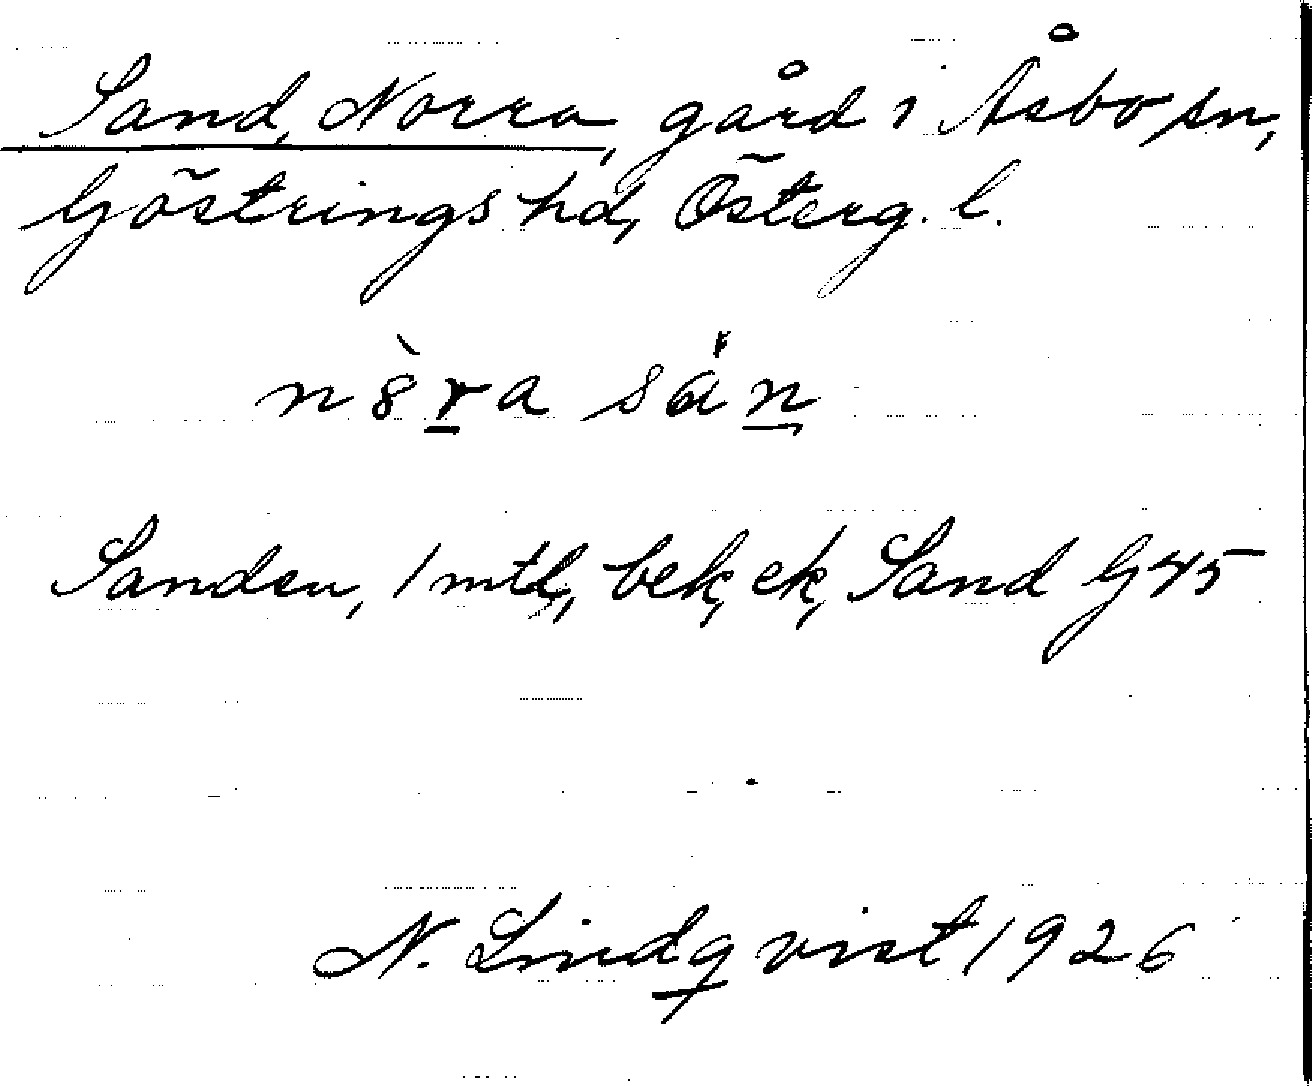 Sand, Norra, gård i Åsbo sn,
Göstrings hd, Österg. l.
n8̀r̲a sán̲
Sanden, 1 mtl, bek, ek, Sand G45
N. Lindqvist 1926